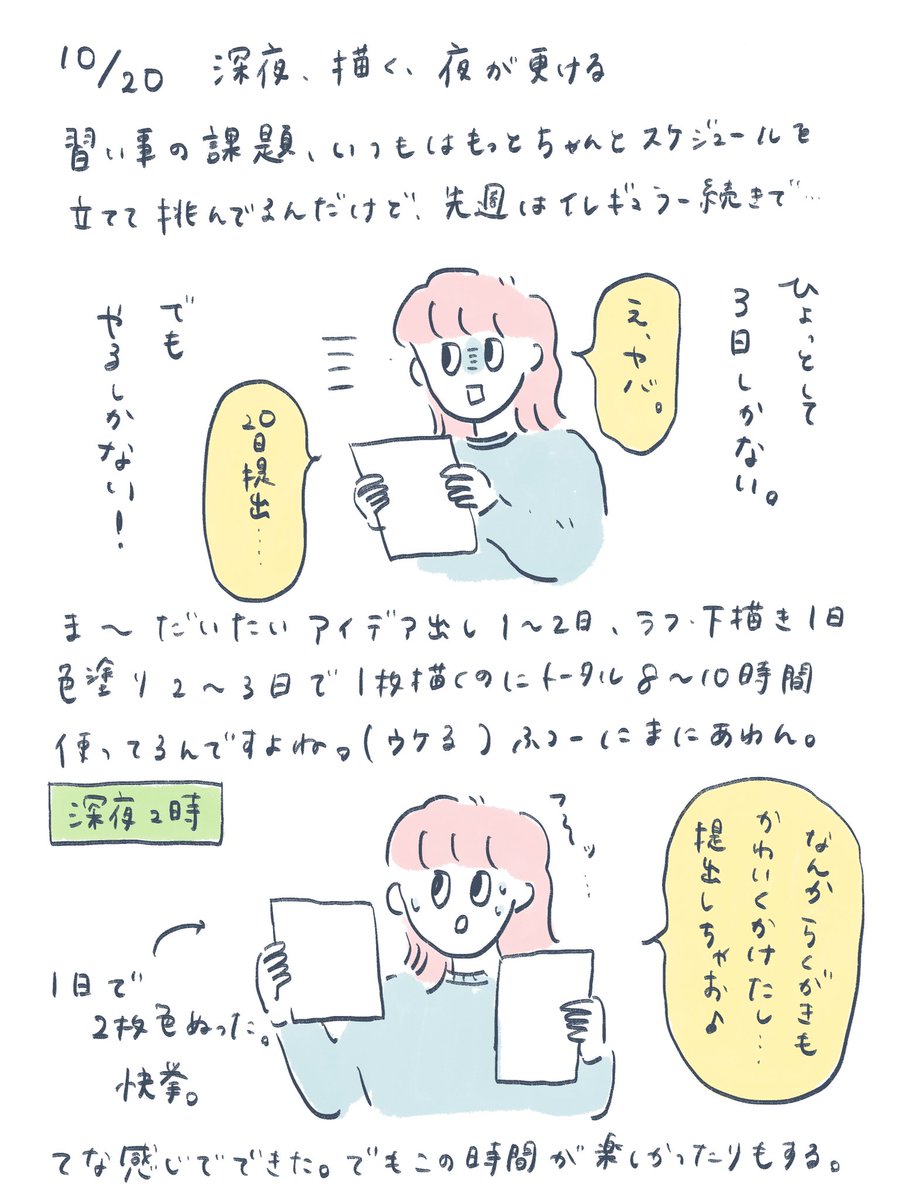 10/20 深夜、描く、夜が更ける
習い事の課題、いつもはもっとちゃんとスケジュールを
立てて挑んでるんだけど、先週はイレギュラー続きで…
ひょっとして
3日しかない。
え、ヤバ。
20日提出……
でも
やるしかない!
ま〜だいたいアイデア出し1〜2日、ラフ・下描き1日
色塗り2〜3日で1枚描くのにトータル8〜10時間
使ってるんですよね。(ウケる)ふつーにまにあわん。
深夜2時
なんからくがきも
かわいくかけたし…
提出しちゃお♪
フーッ…
1日で
2枚色ぬった。
快挙。
てな感じでできた。でもこの時間が楽しかったりもする。